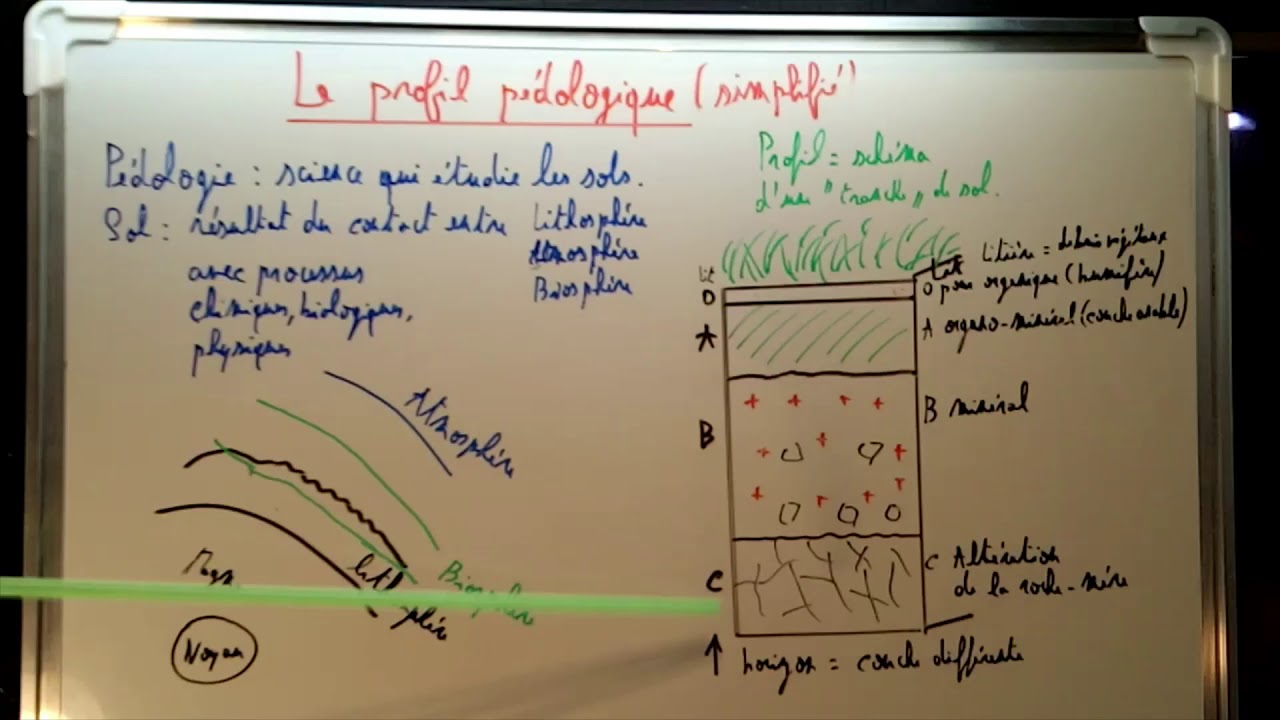 Le profil pédologique (simplifié)
Pédologie : science qui étudie les sols.
Sol : résultat du contact entre Lithosphère
Atmosphère
Biosphère
avec processus
chimiques, biologiques,
physiques
Atmosphère
Biosphère
Noyau
Profil = schéma
d'une "tranche" de sol.
lit
O
A
B
C
Litière = débris végétaux
O pour organique (humifère)
A organo-minéral (couche arable)
B minéral
C Altération
de la roche-mère
horizon = couche différente